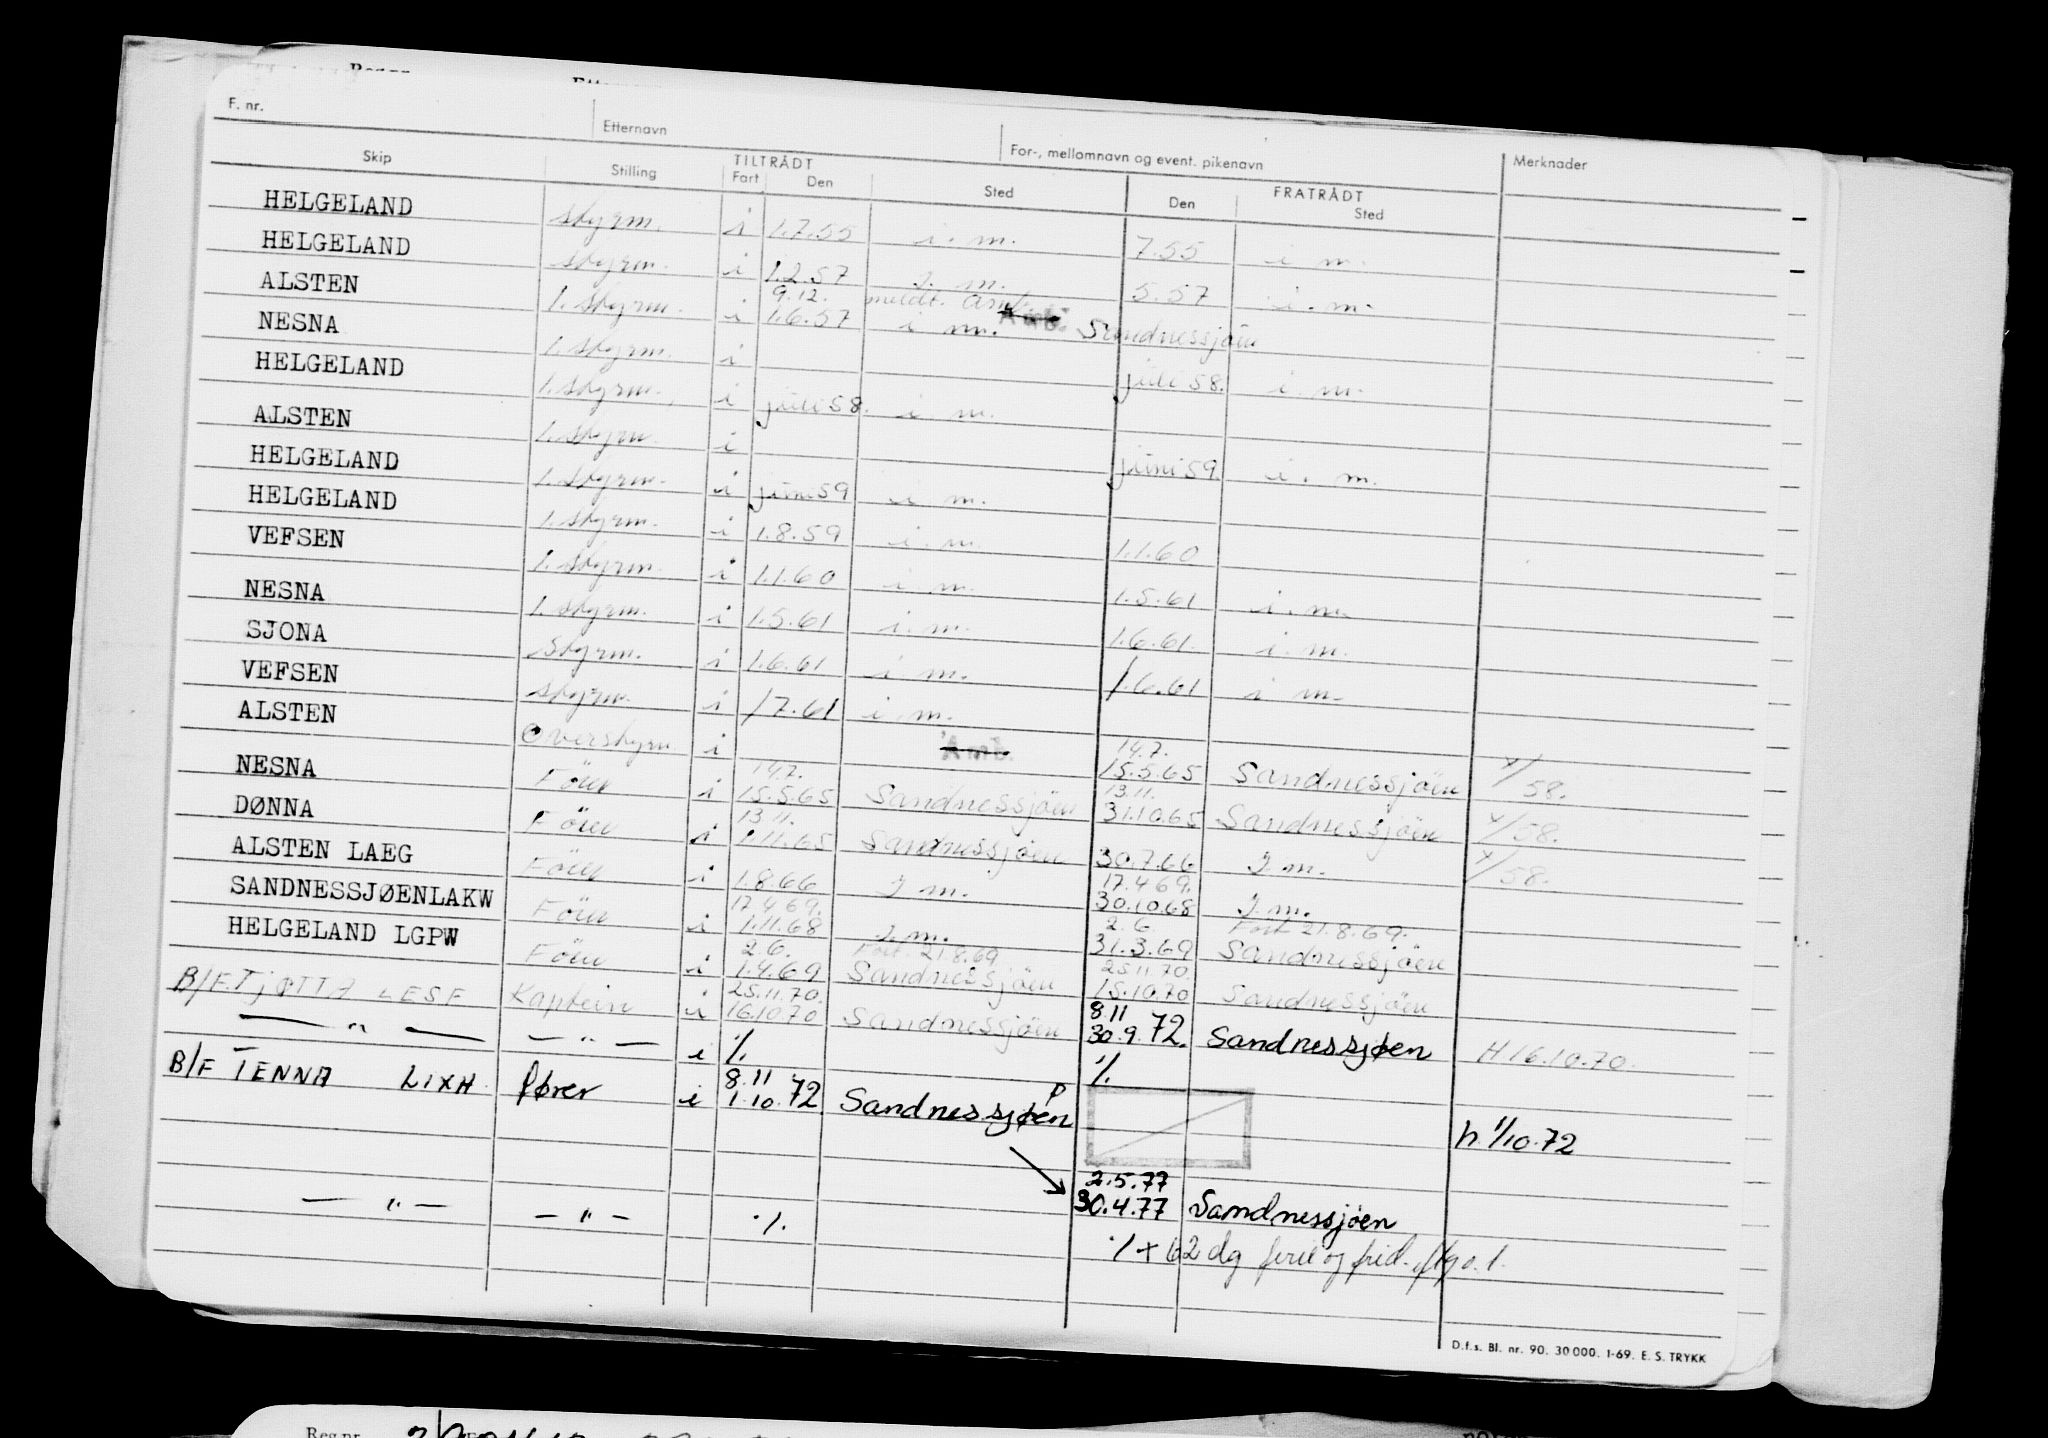 F. nr.
Etternavn
For-, mellomnavn og event. pikenavn
Merknader
Skip Stilling TILTRÅDT FRATRÅDT
Fart Den Sted Den Sted
HELGELAND styrm. i 1.7.55 i. m. 7.55 i m.
HELGELAND styrm. i 1.2.57 i. m. 5.57 i. m.
9.12. meldt.
ALSTEN 1. styrm. i 1.6.57 i m. Sandnessjöen
NESNA 1. styrm. i juli 58. i. m.
HELGELAND 1. styrm. i juli 58. i. m.
ALSTEN 1. styrm. i juni 59. i. m.
HELGELAND 1. styrm. i juni 59 i m.
HELGELAND 1. styrm. i 1.8.59 i. m. 1.1.60
VEFSEN 1. styrm. i 1.1.60 i m. 1.5.61 i. m.
NESNA 1. styrm. i 1.5.61 i. m. 1.6.61. i. m.
SJONA Styrm. i 1.6.61 i m. 1.6.61 i m.
VEFSEN styrm. i 1.7.61 i. m.
14.7.
ALSTEN Overstyrm. i 15.5.65 Sandnessjöen 58.
14.7. 13.11.
NESNA Förer i 15.5.65 Sandnessjöen 31.10.65 Sandnessjöen 58.
13.11.
DØNNA Förer i 1.11.65 Sandnessjöen 30.7.66 J m. 58.
17.4.69.
ALSTEN LAEG Förer i 1.8.66 J m. 30.10.68 J. m.
17.4.69. 2.6. Fort. 21.8.69.
SANDNESSJØENLAKW Förer i 1.11.68 J. m. 31.3.69 Sandnessjöen
2.6. Fort. 21.8.69 25.11.70.
HELGELAND LGPW Förer i 1.4.69 Sandnessjöen 15.10.70 Sandnessjöen
25.11.70. 8.11
B/F. TJØTTA LESF Kaptein i 16.10.70 Sandnessjöen 30.9.72. Sandnessjøen H 16.10.70.
— " — — " — i ·/. ·/.
8.11
B/F TENNA LIXH. fører i 1.10.72 Sandnessjøen h. 1/10.72
2.5.77
30.4.77 Sandnessjöen
— " — — " — ·/. ·/. + 62 dg ferie og frid.
D.f.s. Bl. nr. 90. 30 000. 1-69. E. S. TRYKK
Reg nr.